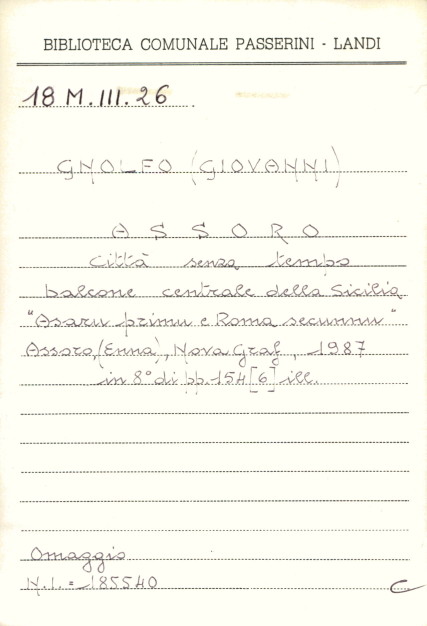 BIBLIOTECA COMUNALE PASSERINI - LANDI
18 M.III.26
GNOLFO (GIOVANNI)
ASSORO
città senza tempo
balcone centrale della Sicilia
"Asaru primu e Roma secunnu"
Assoro, (Enna), Nova Graf, 1987
in 8° di pp. 154 [6] ill.
Omaggio
N.I. = 185540
C